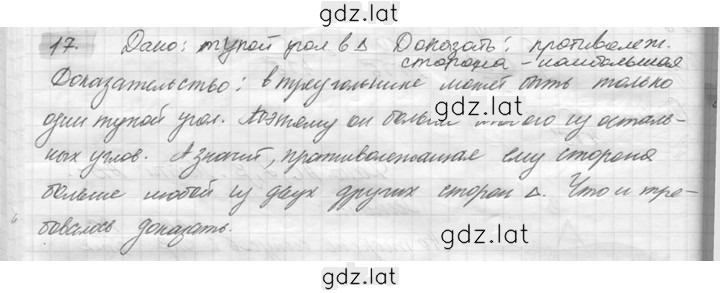 gdz.lat
17. Дано: тупой угол в Δ Доказать: противолеж.
сторона - наибольшая
Доказательство: в треугольнике может быть только
gdz.lat
один тупой угол. Поэтому он больше из осталь-
ных углов. А значит, противолежащая ему сторона
больше любой из двух других сторон Δ. Что и тре-
gdz.lat
бовалось доказать.
gdz.lat